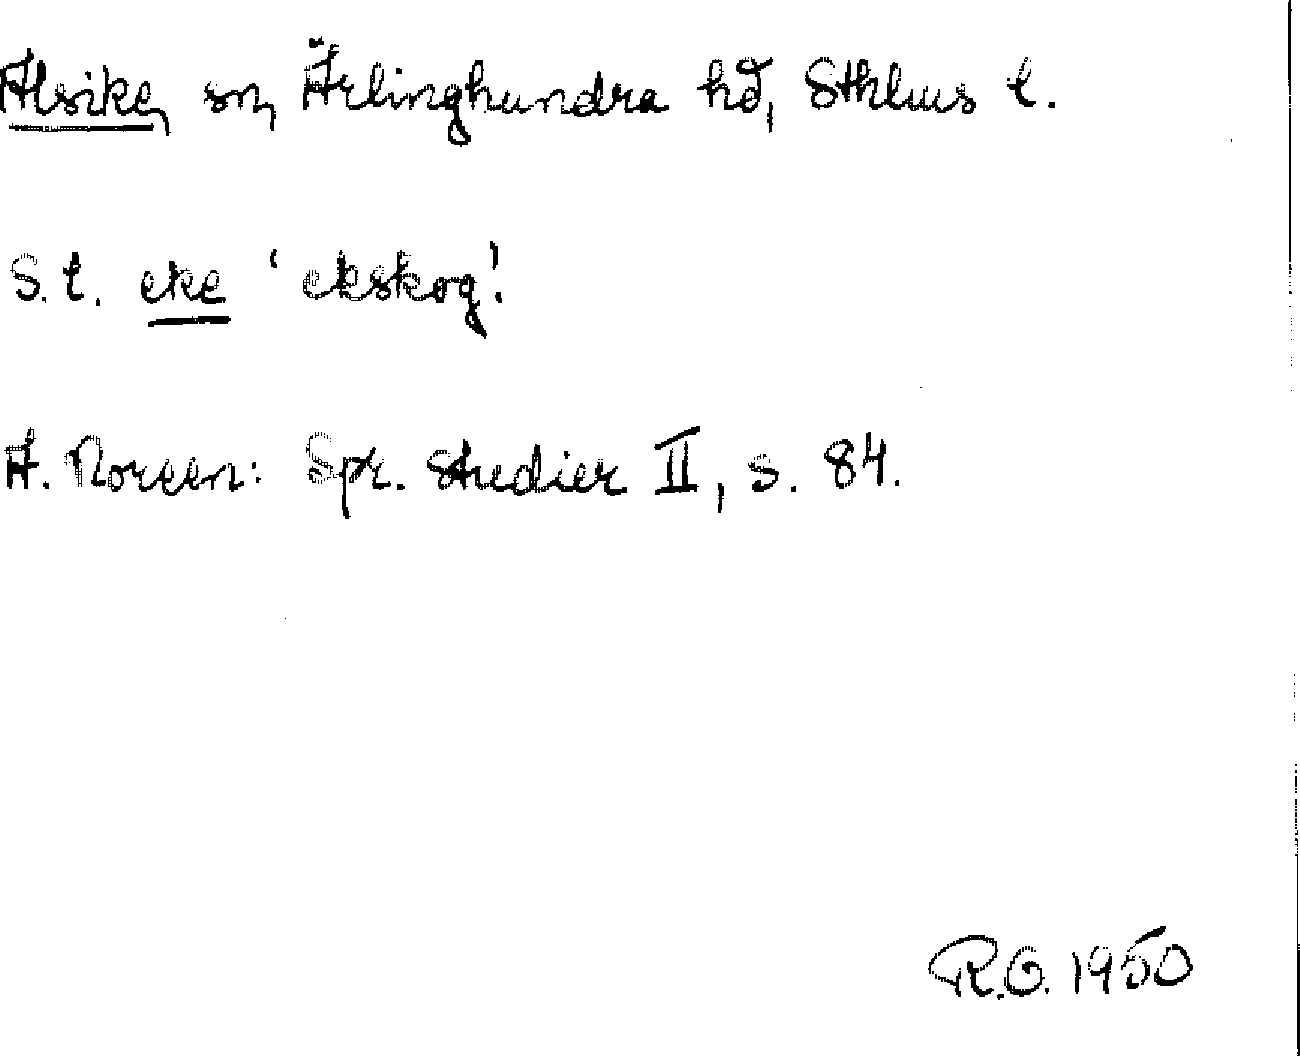 Alsike, sn, Ärlinghundra hd, Sthlms l.
S.l. eke 'ekskog'.
A. Noreen: Spr. studier II, s. 84.
R.O. 1950